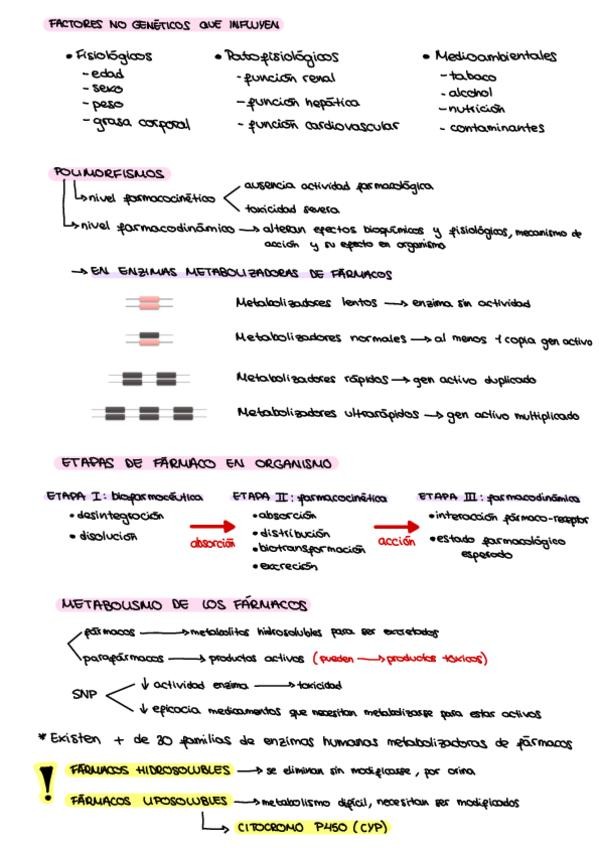 FACTORES NO GENÉTICOS QUE INFLUYEN
• Fisiológicos
- edad
- sexo
- peso
- grasa corporal
• Patofisiológicos
- función renal
- función hepática
- función cardiovascular
• Medioambientales
- tabaco
- alcohol
- nutrición
- contaminantes
POLIMORFISMOS
nivel farmacocinético
ausencia actividad farmacológica
toxicidad severa
nivel farmacodinámico → alteran efectos bioquímicos y fisiológicos, mecanismo de
acción y su efecto en organismo
→ EN ENZIMAS METABOLIZADORAS DE FÁRMACOS
Metabolizadores lentos → enzima sin actividad
Metabolizadores normales → al menos 1 copia gen activo
Metabolizadores rápidos → gen activo duplicado
Metabolizadores ultrarápidos → gen activo multiplicado
ETAPAS DE FÁRMACO EN ORGANISMO
ETAPA I: biofarmacéutica
• desintegración
• disolución
absorción
ETAPA II: farmacocinética
• absorción
• distribución
• biotransformación
• excreción
acción
ETAPA III: farmacodinámica
• interacción fármaco-receptor
• estado farmacológico
esperado
METABOLISMO DE LOS FÁRMACOS
fármacos → metabolitos hidrosolubles para ser excretados
parafármacos → productos activos (pueden → productos tóxicos)
SNP
↓ actividad enzima → toxicidad
↓ eficacia medicamentos que necesitan metabolizarse para estar activos
* Existen + de 30 familias de enzimas humanas metabolizadoras de fármacos
! FÁRMACOS HIDROSOLUBLES → se eliminan sin modificarse, por orina
FÁRMACOS LIPOSOLUBLES → metabolismo difícil, necesitan ser modificados
CITOCROMO P450 (CYP)